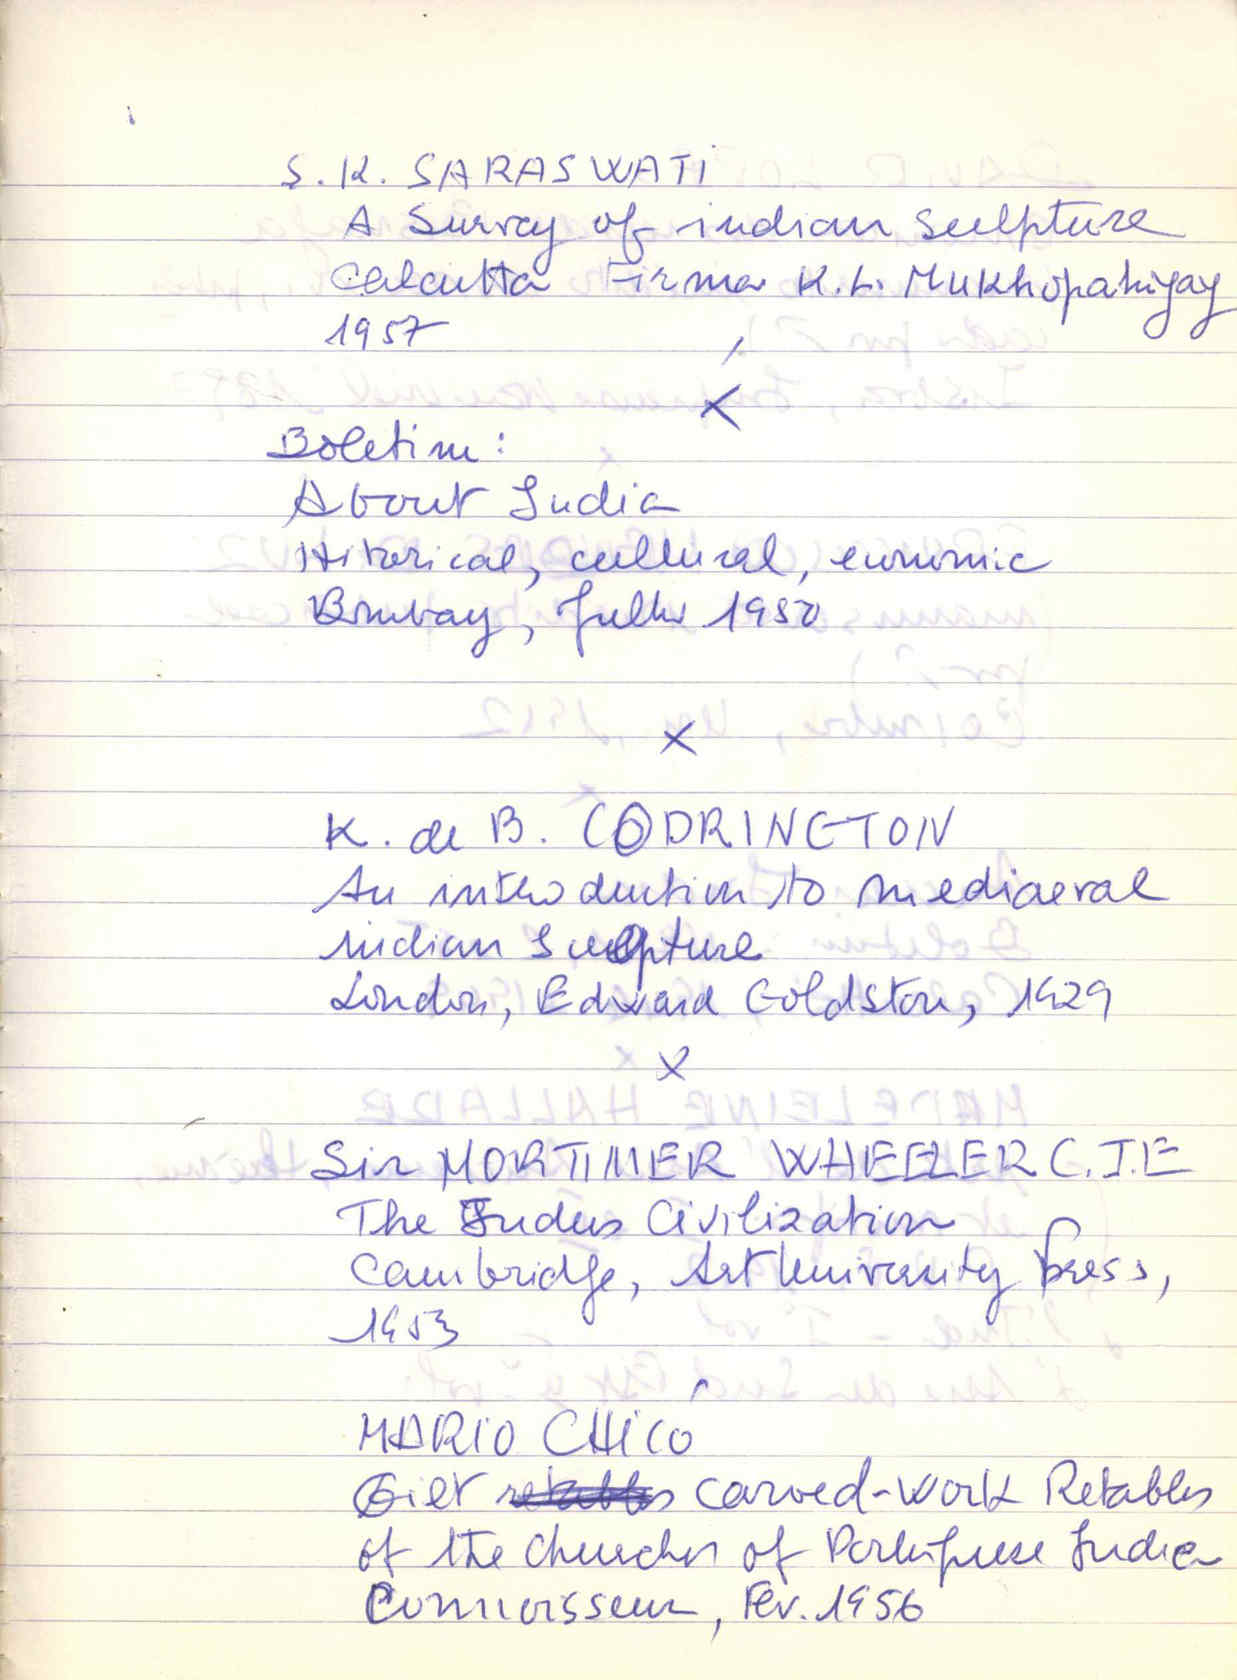 S. K. SARASWATI
A Survey of indian sculpture
Calcutta Firma K. L. Mukhopahiyay
1957
X
Boletim:
About India
Hitorical, cultural, economic
Bombay, Julho 1950
X
K. de B. CODRINGTON
An introduction to mediaeval
indian Sculpture
London, Edward Goldston, 1929
X
Sir MORTIMER WHEELER C.I.E
The Indus Civilization
Cambridge, At University press,
1953
MARIO CHICÓ
Gilt retables carved-work Retables
of the churches of Portuguese India
Connoisseur, Fev. 1956